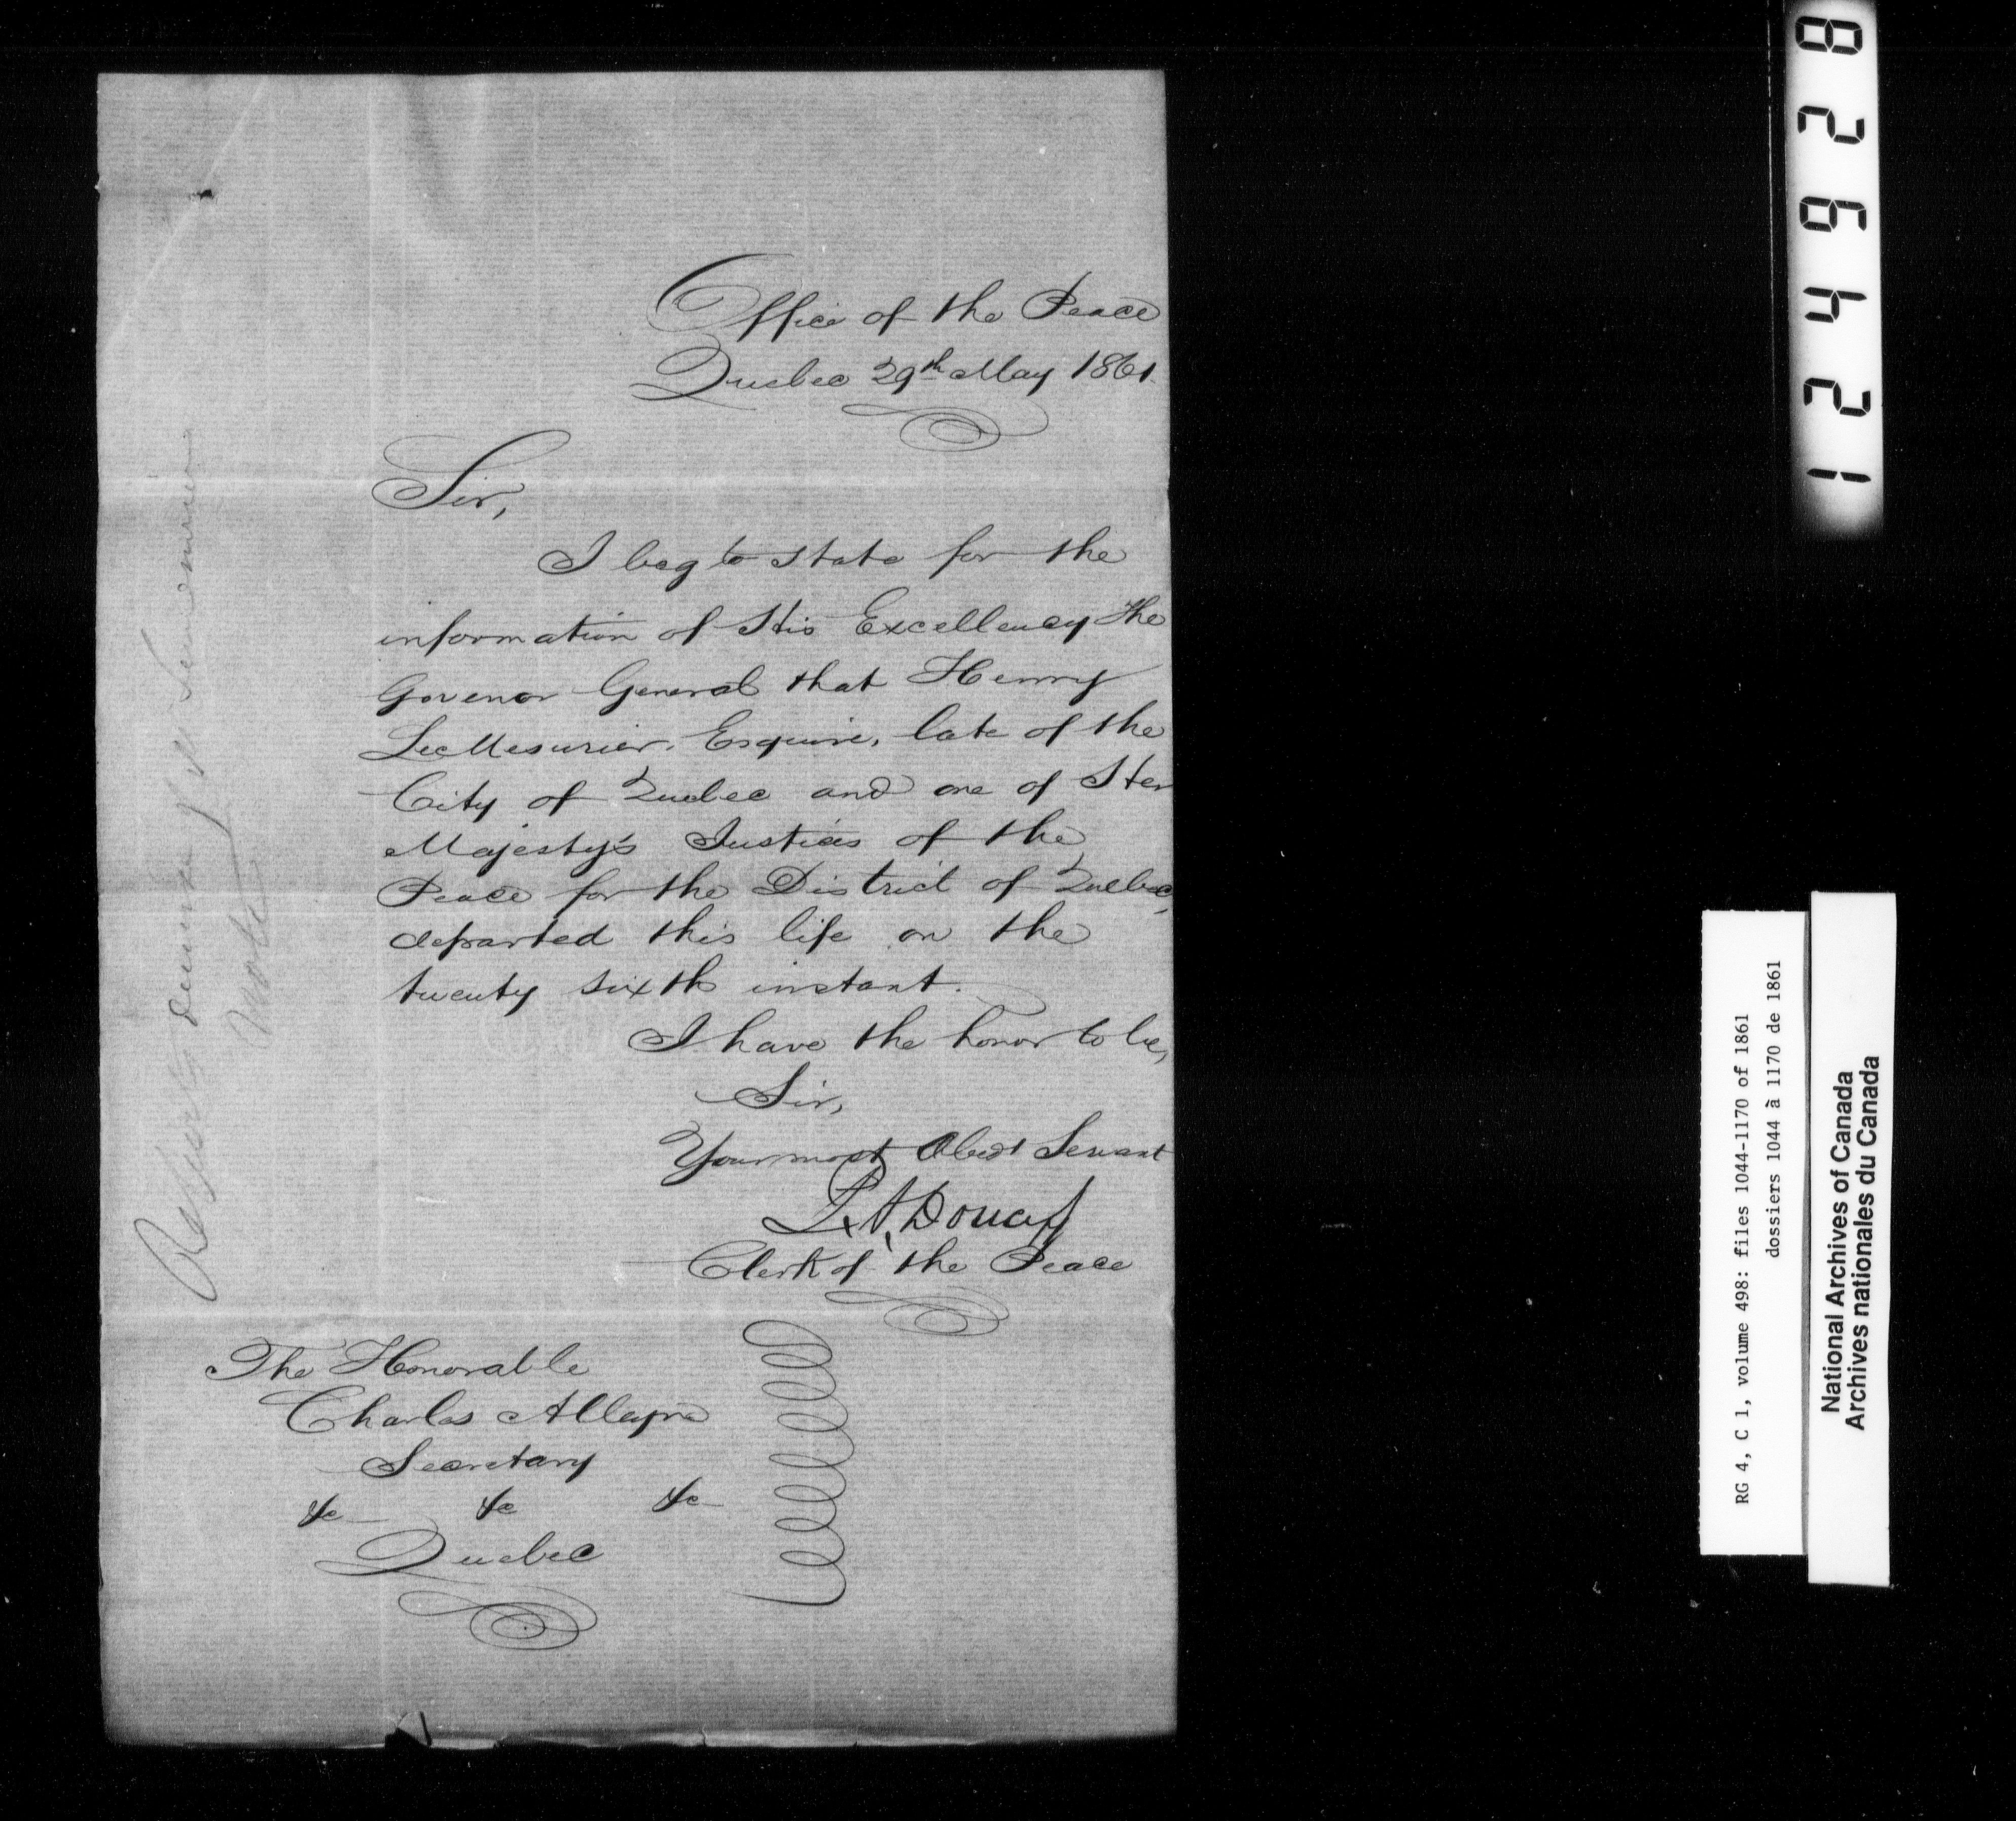 Office of the Peace
Quebec 29th May 1861.
Sir,
I beg to state for the
information of His Excellency the
Govenor General that Henry
LeeMesurier. Esquire, late of the
City of Quebec and one of Her
Majesty's Justices of the
Peace for the District of Quebec,
departed this life on the
twenty sixth instant.
I have the honor to be,
Sir,
Your most Obedt Servant
Doucet
Clerk of the Peace
The Honorable
Charles Alleyn
Secretary
&c &c &c
Quebec
1 2 4 4 9 2 8
RG 4, C 1, volume 498: files 1044-1170 of 1861
dossiers 1044 à 1170 de 1861
National Archives of Canada
Archives nationales du Canada